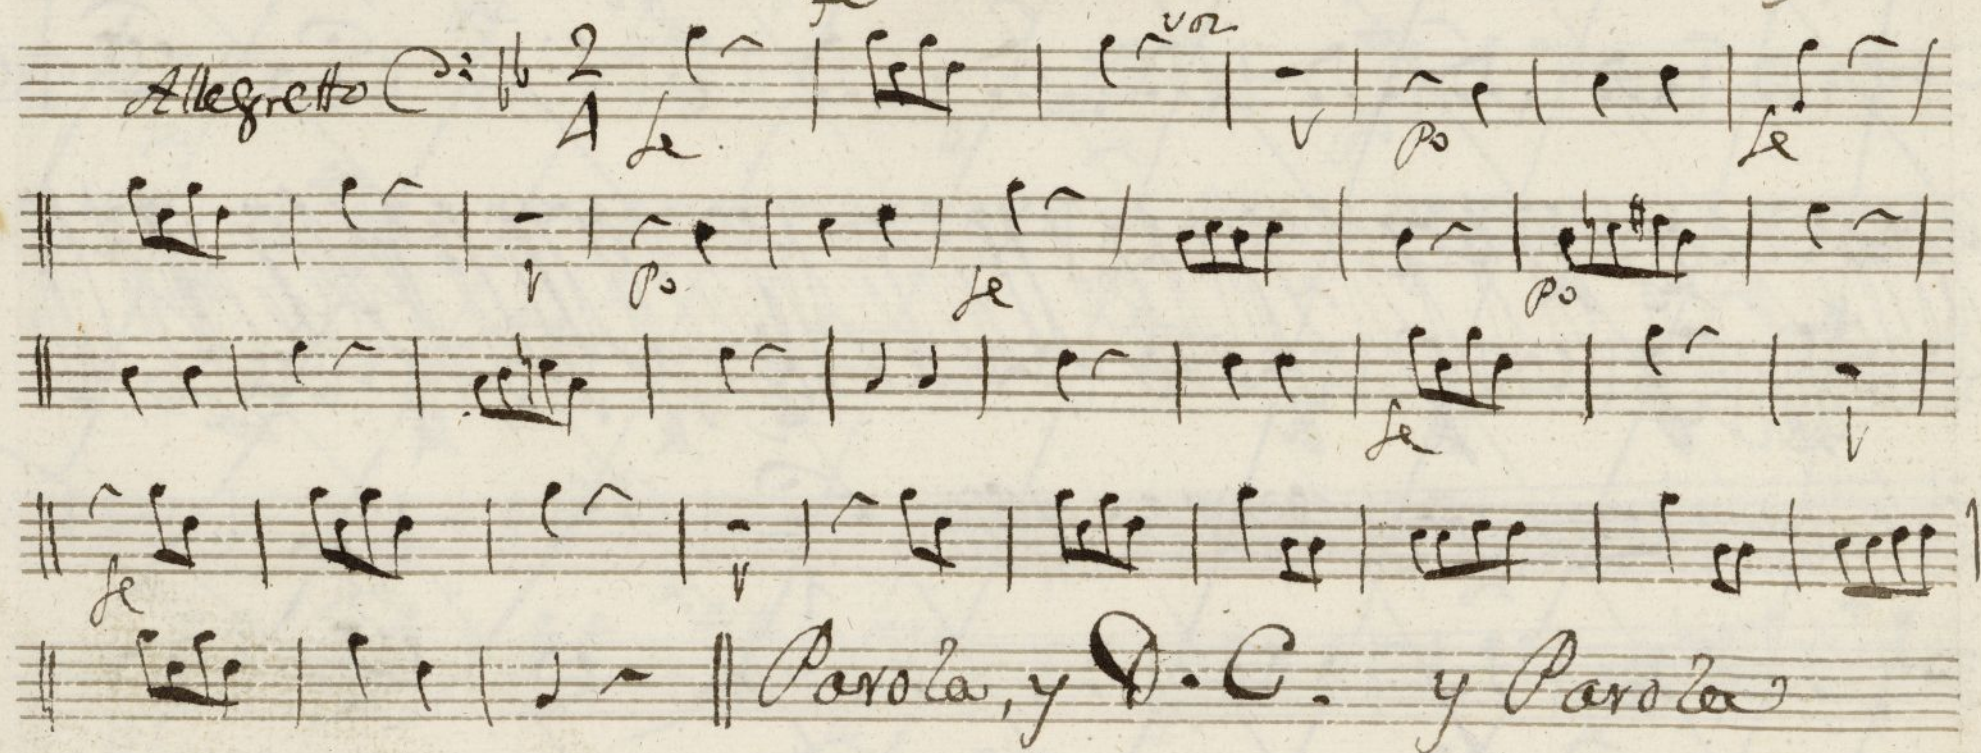 voz
Allegretto 2/4
fe V Po fe
V Po fe Po
fe V
fe V
Parola, y D. C. y Parola